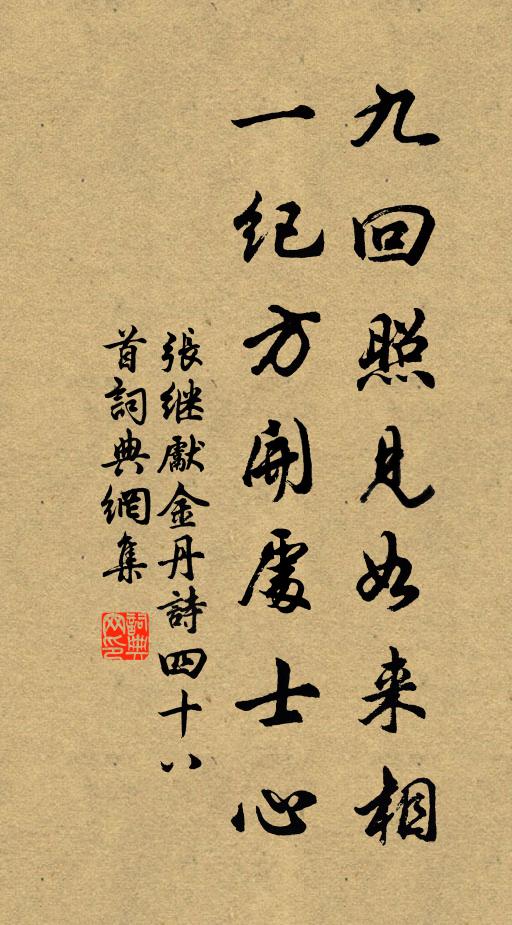 九回照見如来相
一纪方開處士心
張继獻金丹詩四十八
首詞典網集
詞典网印